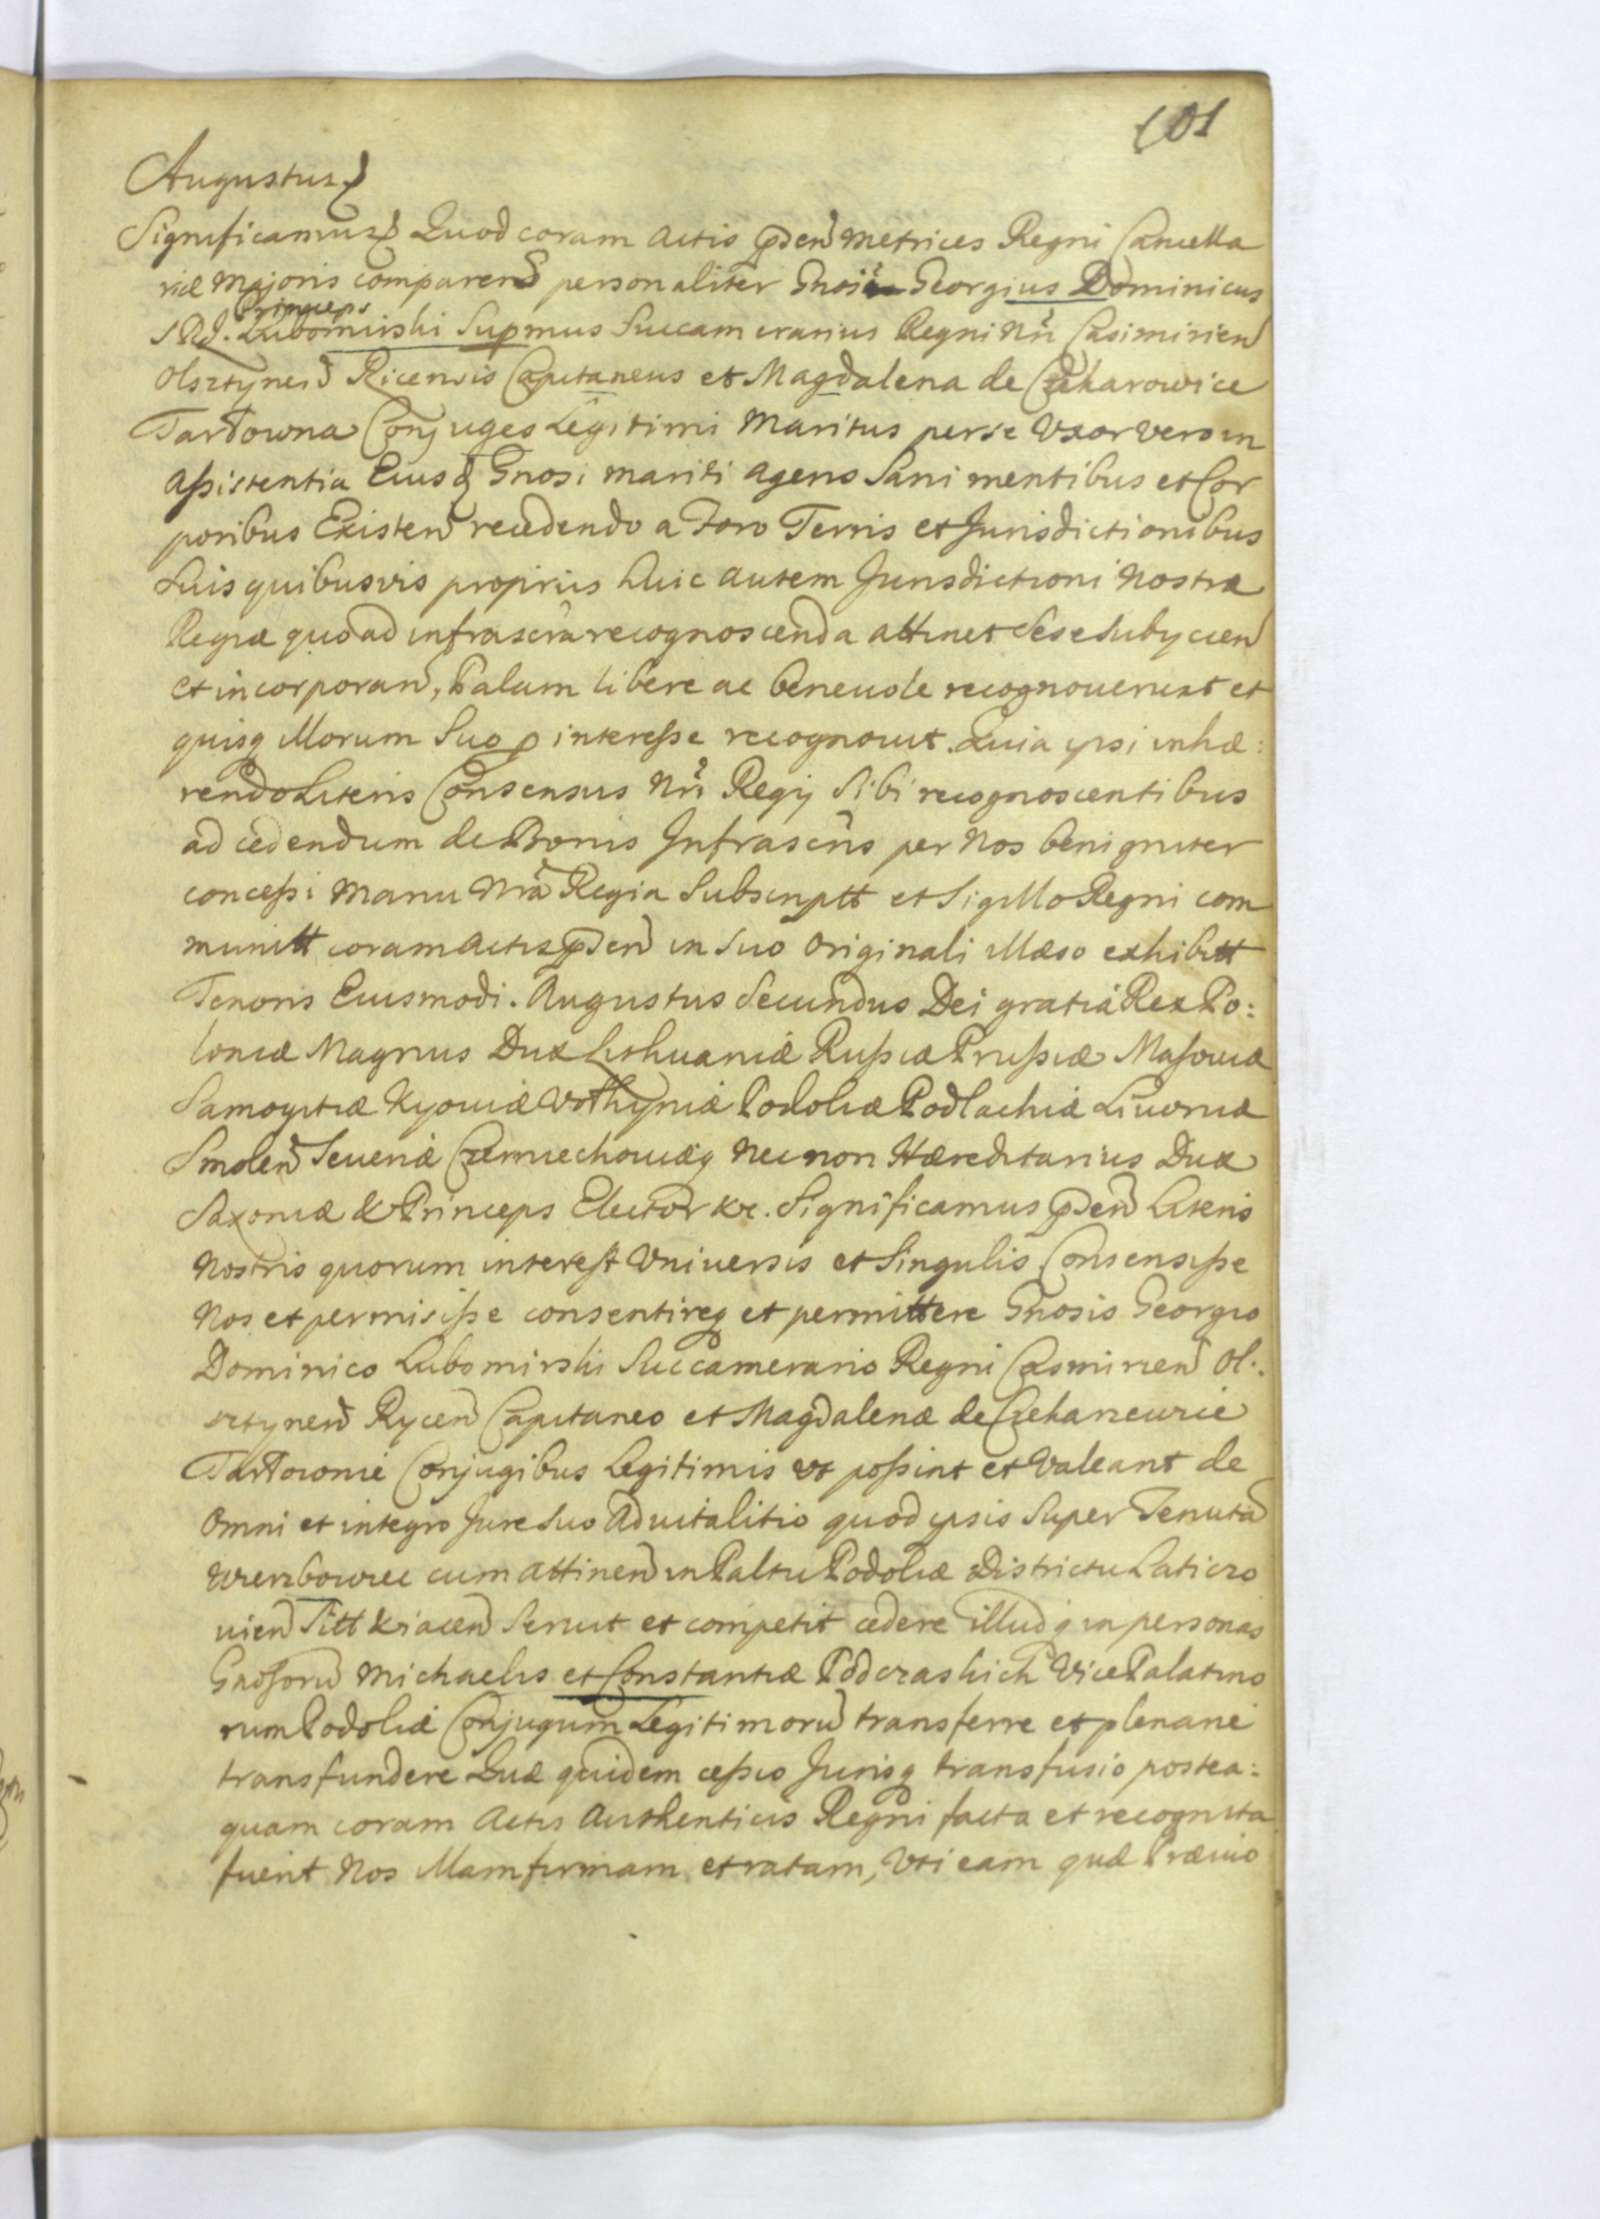 101
Augustus
Significamus Quod coram Actis pden Metrices Regni Cancella
riæ Majoris comparens personaliter Gnosi Georgius Dominicus
Princeps
SRJ. Lubomirski Supmus Succamerarius Regni Nri Casimirien
Olsztynen Ricensis Capitaneus et Magdalena de Czekarowice
Tarłowna Conjuges Legitimi Maritus per se Uxor vero in
Assistentia Eiusd Gnosi mariti agens Sani mentibus et Cor
poribus Existen recedendo a Foro Terris et Jurisdictionibus
Suis quibusvis proprius huic autem Jurisdictioni Nostræ
Regiæ quoad infrascra recognoscenda attinet Sese Subycien
et incorporan, Palam libere ac beneuole recognouerunt et
quisq Illorum Suo p interesse recognouit. Quia ipsi inhæ:
rendo Literis Consensus Nri Regij Sibi recognoscentibus
ad cedendum de Bonis Infrascris per Nos benigniter
concessi Manu Nra Regia Subscriptt et Sigillo Regni com
munitt coram Actis pden in Suo Originali Illæso exhibitt
Tenoris Eiusmodi. Augustus Secundus Dei gratia Rex Po:
loniæ Magnus Dux Lithuaniæ Russiæ Prussiæ Masouiæ
Samogitiæ Kyouiæ Volhyniæ Podoliæ Podlachiæ Liuoniæ
Smolen Seueriæ Czerniechouiæq Nec non Hæreditarius Dux
Saxoniæ & Princeps Elector &c. Significamus pden Literis
Nostris quorum interest Vniuersis et Singulis Consensisse
Nos et permisisse consentireq et permittere Gnosis Georgio
Dominico Lubomirski Succamerario Regni Casimirien Ol:
sztynen Rycen Capitaneo et Magdalenæ de Czekarzewice
Tarłownie Conjugibus Legitimis vt possint et Valeant de
Omni et integro Jure Suo Aduitalitio quod ipsis Super Tenuta
Wierzbowiec cum attinen in Paltu Podoliæ Districtu Laticzo
uien Sitt & iacen Seruit et competit cedere illudq in personas
Gnosoru Michaelis et Constantiæ Podczaskich Vice Palatino
rum Podoliæ Conjugum Legitimoru transferre et plenarie
transfundere Quæ quidem cessio Jurisq transfusio postea:
quam coram Actis Authenticis Regni facta et recognita
fuerit Nos Illam firmam et ratam, Vti eam quæ Præuio